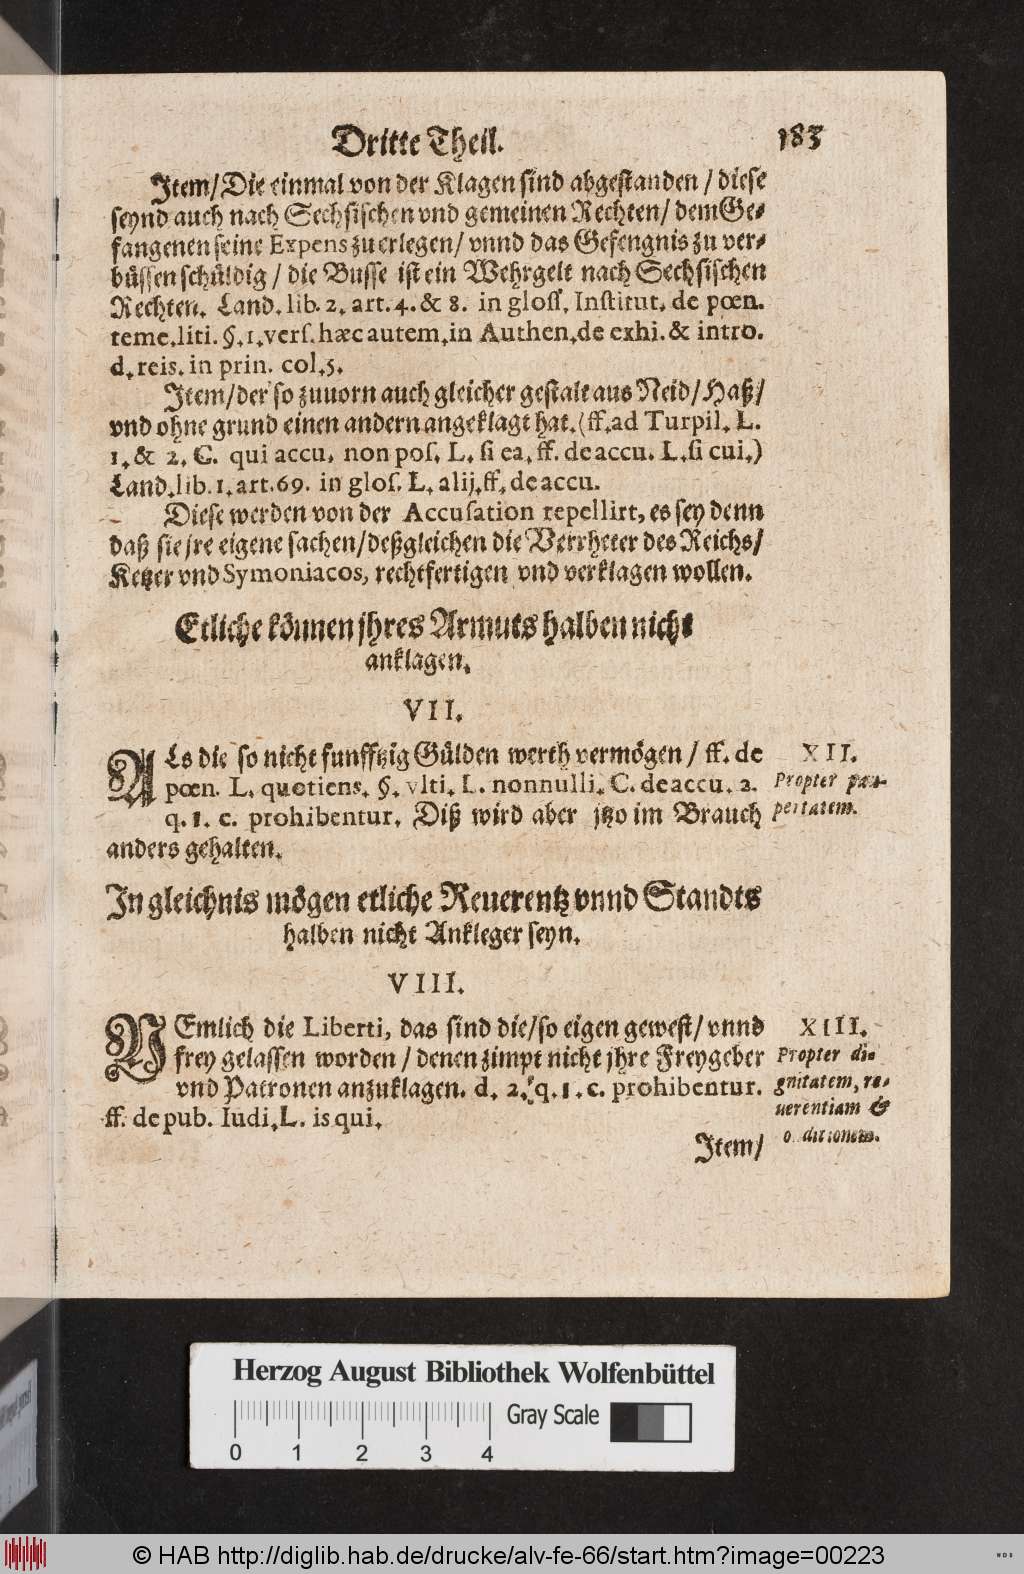 Dritte Theil. 183
Item/Die einmal von der Klagen sind abgestanden / diese
seynd auch nach Sechsischen vnd gemeinen Rechten/ dem Ge-
fangenen seine Expens zu erlegen/ vnnd das Gefengnis zu ver-
büssen schüldig / die Busse ist ein Wehrgelt nach Sechsischen
Rechten. Land. lib. 2. art. 4. & 8. in gloss. Institut. de pœn.
teme. liti. §. 1. vers. hæc autem. in Authen. de exhi. & intro.
d. reis. in prin. col. 5.
Item/der so zuuorn auch gleicher gestalt aus Neid/Haß/
vnd ohne grund einen andern angeklagt hat. (ff. ad Turpil. L.
1. & 2. C. qui accu. non pos. L. si ea. ff. de accu. L. si cui.)
Land. lib. 1. art. 69. in glos. L. alij. ff. de accu.
Diese werden von der Accusation repellirt, es sey denn
daß sie jre eigene sachen/deßgleichen die Verrheter des Reichs/
Ketzer vnd Symoniacos, rechtfertigen vnd verklagen wollen.
Etliche können jhres Armuts halben nicht
anklagen.
VII.
ALs die so nicht funfftzig Gülden werth vermögen / ff. de
pœn. L. quotiens. §. vlti. L. nonnulli. C. de accu. 2.
q. 1. c. prohibentur. Diß wird aber jtzo im Brauch
anders gehalten.
XII.
Propter pau-
pertatem.
In gleichnis mögen etliche Reuerentz vnnd Standts
halben nicht Ankleger seyn.
VIII.
NEmlich die Liberti, das sind die/so eigen gewest/ vnnd
frey gelassen worden / denen zimpt nicht jhre Freygeber
vnd Patronen anzuklagen. d. 2. q. 1. c. prohibentur.
ff. de pub. Iudi. L. is qui.
XIII.
Propter di-
gnitatem, re-
uerentiam &
Item/
Herzog August Bibliothek Wolfenbüttel
Gray Scale
0 1 2 3 4
© HAB http://diglib.hab.de/drucke/alv-fe-66/start.htm?image=00223